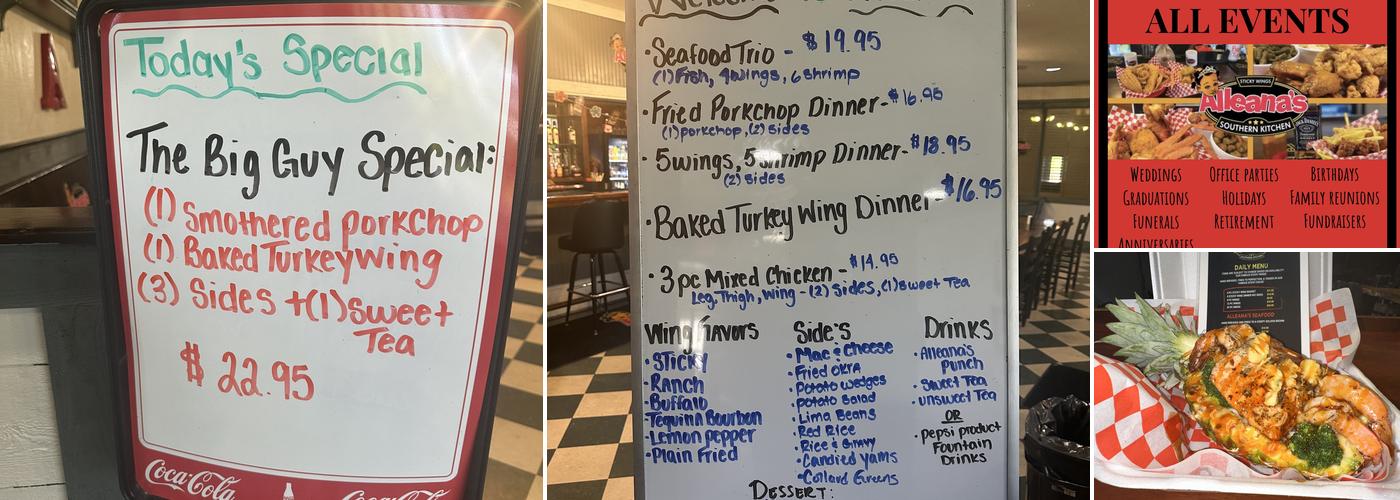 Today's Special
The Big Guy Special:
(1) Smothered porkchop
(1) Baked Turkeywing
(3) Sides +(1)sweet
Tea
$ 22.95
Coca-Cola
Coca-Cola
Welcome to
·Seafood Trio - $19.95
(1)Fish, 4wings, 6 shrimp
·Fried Porkchop Dinner-$16.95
(1)porkchop,(2)sides
·5wings, 5 shrimp Dinner-$18.95
(2) sides
·Baked Turkey Wing Dinner $16.95
·3pc Mixed Chicken - $14.95
Leg, Thigh, Wing - (2) Sides,(1)sweet Tea
Wing Flavors
·Sticky
·Ranch
·Buffalo
·Tequila Bourbon
·Lemon pepper
·Plain Fried
Side's
·Mac & Cheese
·Fried OKra
·Potato wedges
·Potato Salad
·Lima Beans
·Red Rice
·Rice & Gravy
·Candied Yams
·Collard Greens
Drinks
·Alleana's
Punch
·Sweet Tea
·unsweet Tea
OR
·pepsi product
Fountain
Drinks
Dessert:
ALL EVENTS
STICKY WINGS
Alleana's
SOUTHERN KITCHEN
Weddings
Office Parties
Birthdays
Graduations
Holidays
Family Reunions
Funerals
Retirement
Fundraisers
Anniversaries
DAILY MENU
ALLEANA'S SEAFOOD